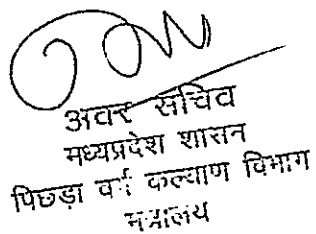 अवर सचिव
मध्यप्रदेश शासन
पिछड़ा वर्ग कल्याण विभाग
मंत्रालय